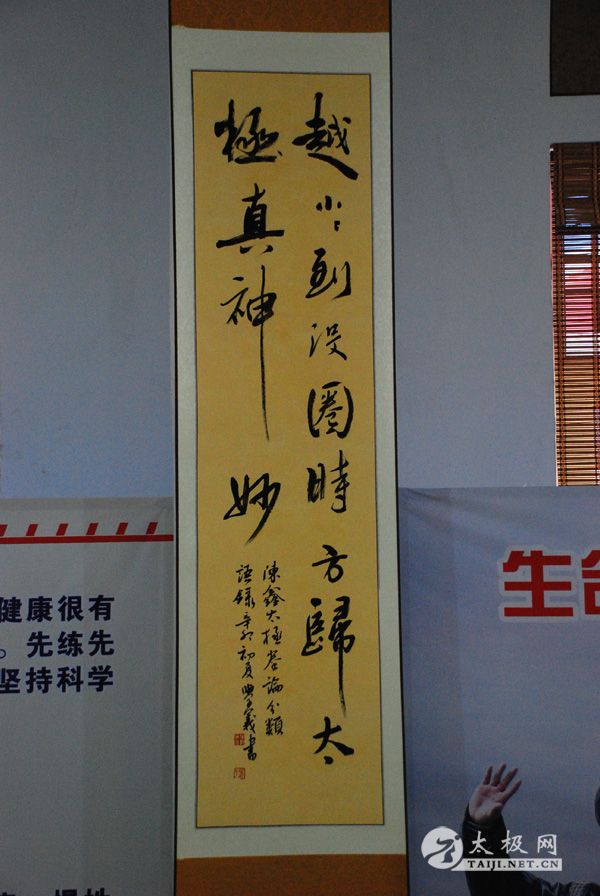 越小小到没圈時方歸太
極真神妙
陳鑫太極拳論分類
語録辛卯初夏義書
健康很有
。先练先
坚持科学
生命
太极网
TAIJI.NET.CN